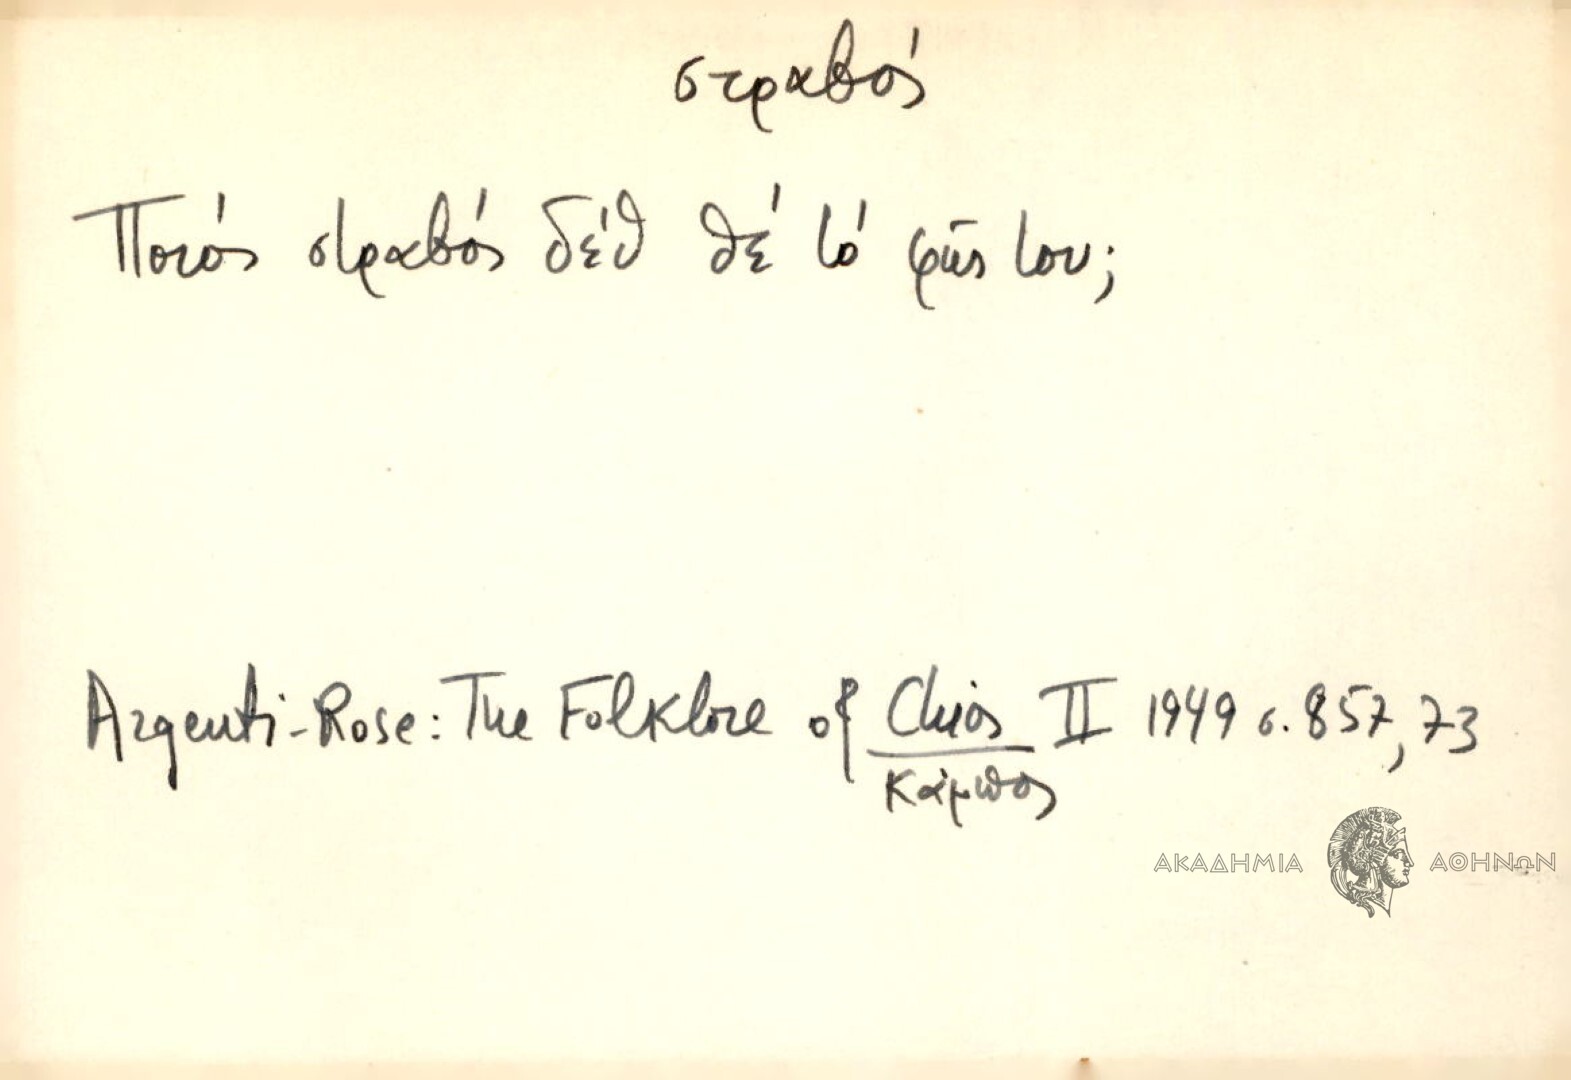 στραβός
Ποιός στραβός δέθ θέ τό φῶς του;
Argenti-Rose: The Folklore of Chios II 1949 σ. 857, 73
Κάμπος
ΑΚΑΔΗΜΙΑ ΑΘΗΝΩΝ